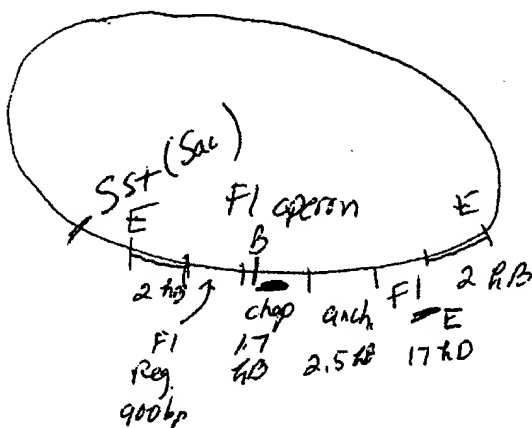 Sst (Sac)
E
F1 operon
B
E
2 kB
F1
Reg.
900bp
chap
1.7
kB
anch.
2.5 kB
F1
E
17 kD
2 kB